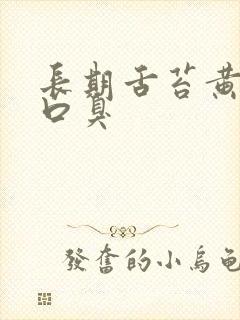 長期舌苔黃
口臭
發奮的小烏龜